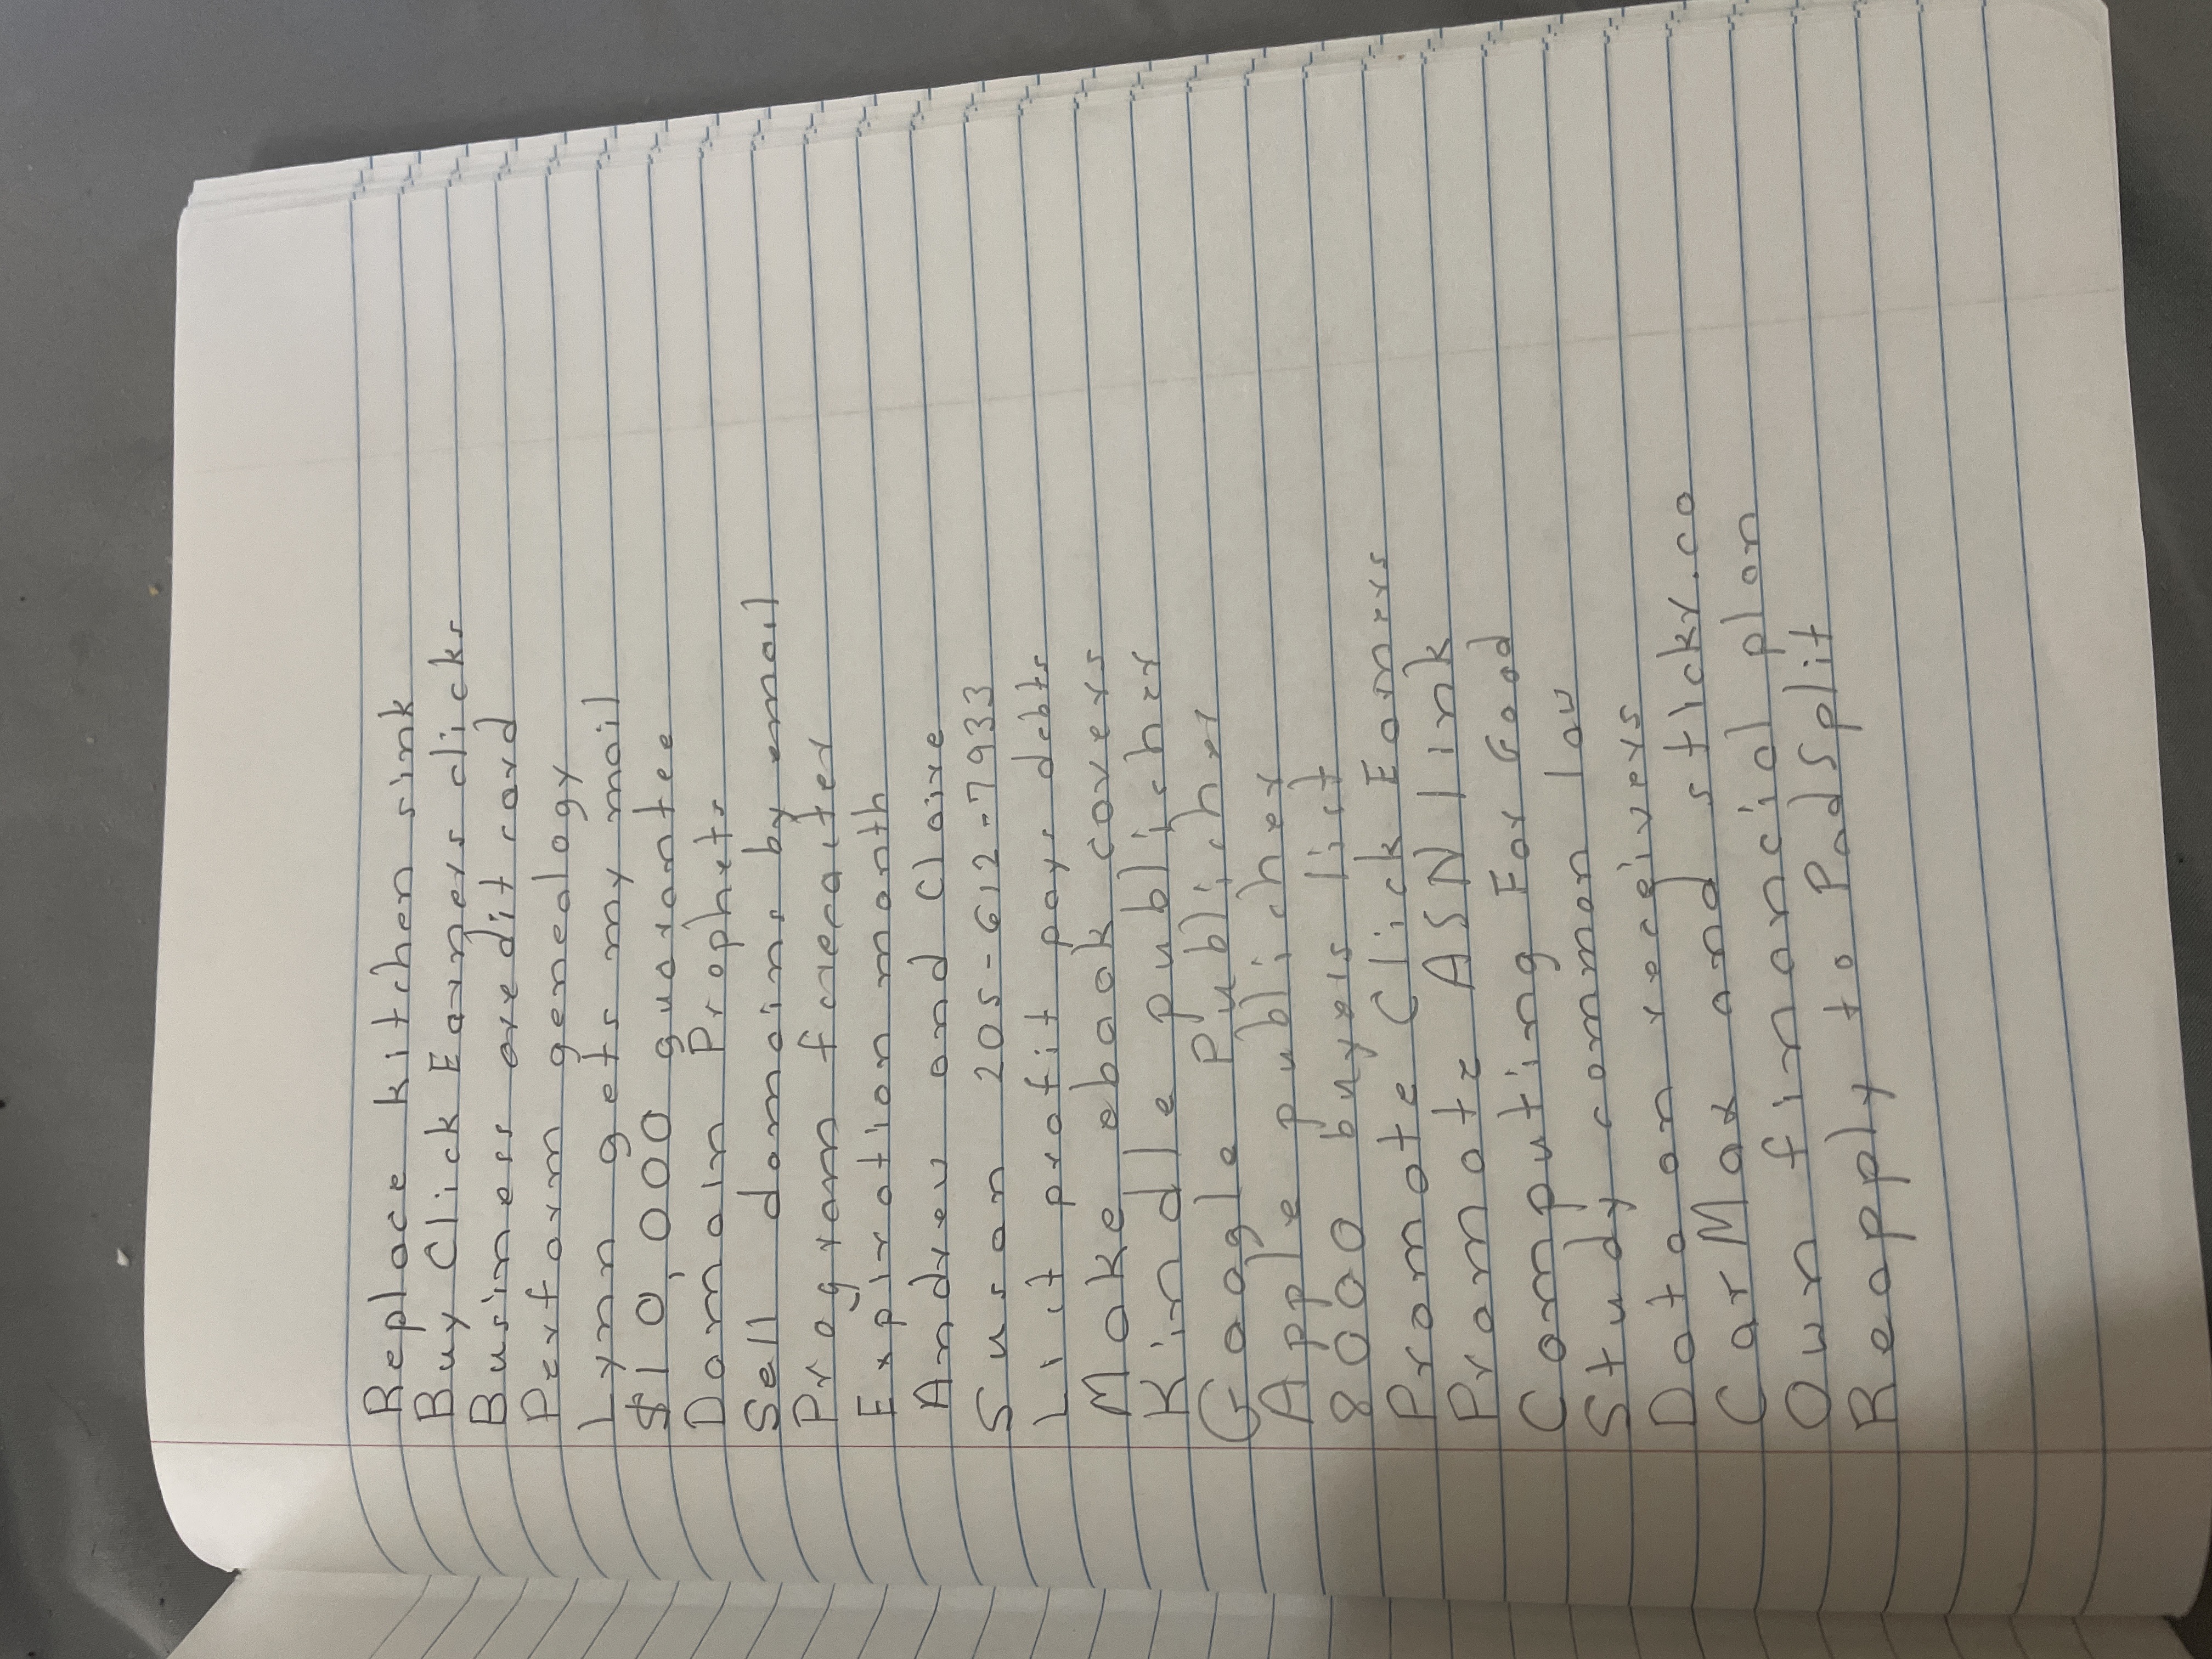 Replace kitchen sink
Buy Click Earners clicks
Business credit card
Perform genealogy
Lynn gets my mail
$10,000 guarantee
Domain Prophets
Sell domains by email
Program forecaster
Expiration month
Andrew and Claire
Susan 205-612-7933
List profit pays debts
Make ebook covers
Kindle publisher
Google Publisher
Apple publisher
8000 buyers list
Promote Click Earners
Promote ASN link
Computing For God
Study common law
Dotan receivers
CarMax and sticky.co
Own financial plan
Reapply to PadSplit